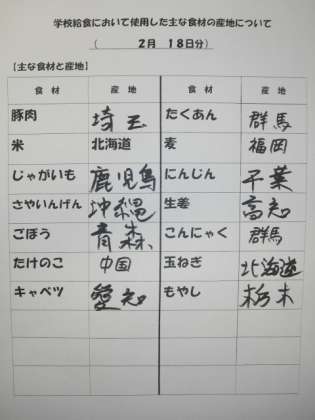 学校給食において使用した主な食材の産地について
（　　　２月　１８日分）
【主な食材と産地】
食　材　産　地　食　材　産　地
豚肉　埼玉　たくあん　群馬
米　北海道　麦　福岡
じゃがいも　鹿児島　にんじん　千葉
さやいんげん　沖縄　生姜　高知
ごぼう　青森　こんにゃく　群馬
たけのこ　中国　玉ねぎ　北海道
キャベツ　愛知　もやし　栃木